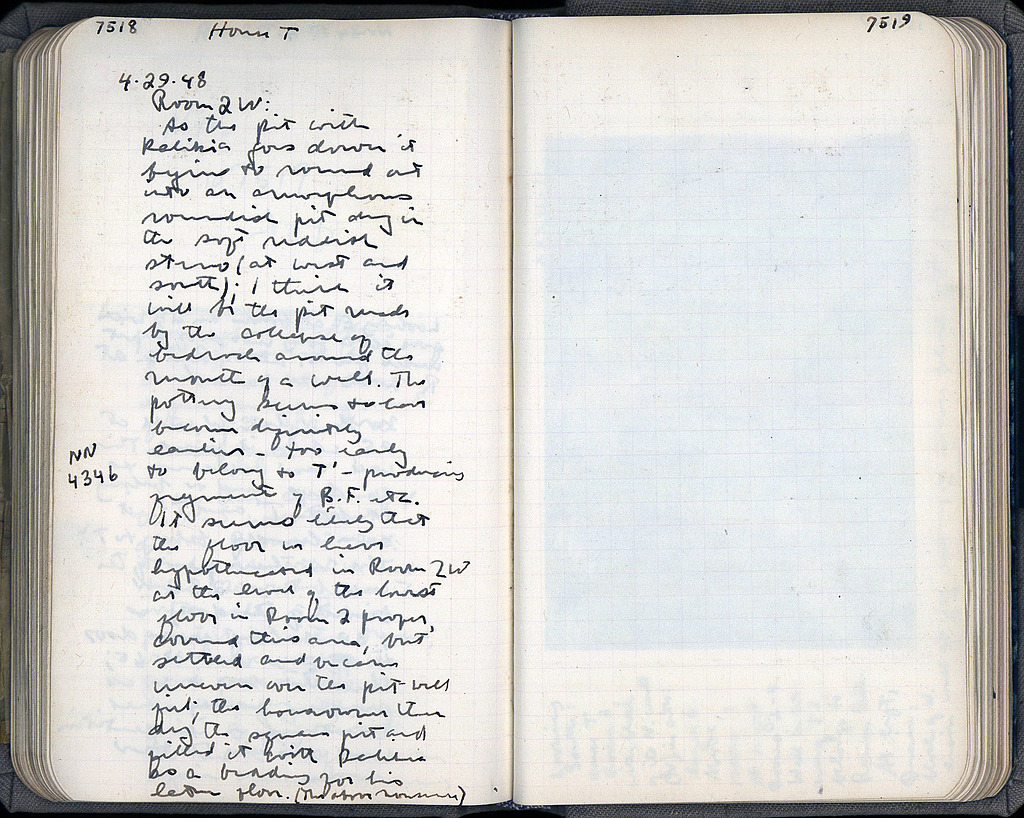 7518 House T
4·29·48
Room 2 W:
As the pit with
kalikia goes down it
begins to round out
into an amorphous
roundish pit dug in
the soft reddish
stereo (at west and
south); I think it
will be the pit made
by the collapse of
bedrock around the
mouth of a well. The
pottery seems to have
become definitely
earlier – too early
NN
4346
to belong to T' – producing
fragments of B.F. etc.
It seems likely that
the floor we have
hypothecated in Room 2W
at the level of the lowest
floor in Room 2 proper,
covered this area, but
settled and became
uneven over the pit-well
pit; the houseowner then
dug the square pit and
filled it with kalikia
as a bedding for his
later floor. (The above
7519